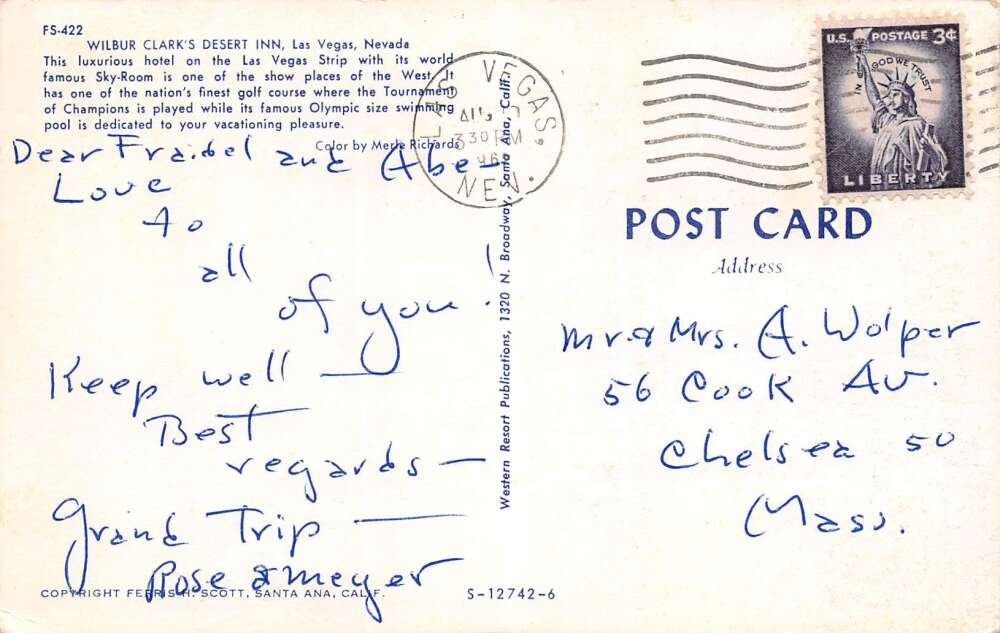 FS-422
WILBUR CLARK'S DESERT INN, Las Vegas, Nevada
This luxurious hotel on the Las Vegas Strip with its world
famous Sky-Room is one of the show places of the West. It
has one of the nation's finest golf course where the Tournament
of Champions is played while its famous Olympic size swimming
pool is dedicated to your vacationing pleasure.
Color by Merle Richards
Dear Fraidel and Abe-
Love
to
all
of you!
Keep well —
Best
regards —
Grand Trip —
Rose & Meyer
COPYRIGHT FERRIS H. SCOTT, SANTA ANA, CALIF.
S-12742-6
Western Resort Publications, 1320 N. Broadway, Santa Ana, Calif.
LAS VEGAS,
330 PM
NEV.
U.S. POSTAGE 3¢
IN GOD WE TRUST
LIBERTY
POST CARD
Address
Mr. & Mrs. A. Wolper
56 Cook Av.
Chelsea 50
Mass.